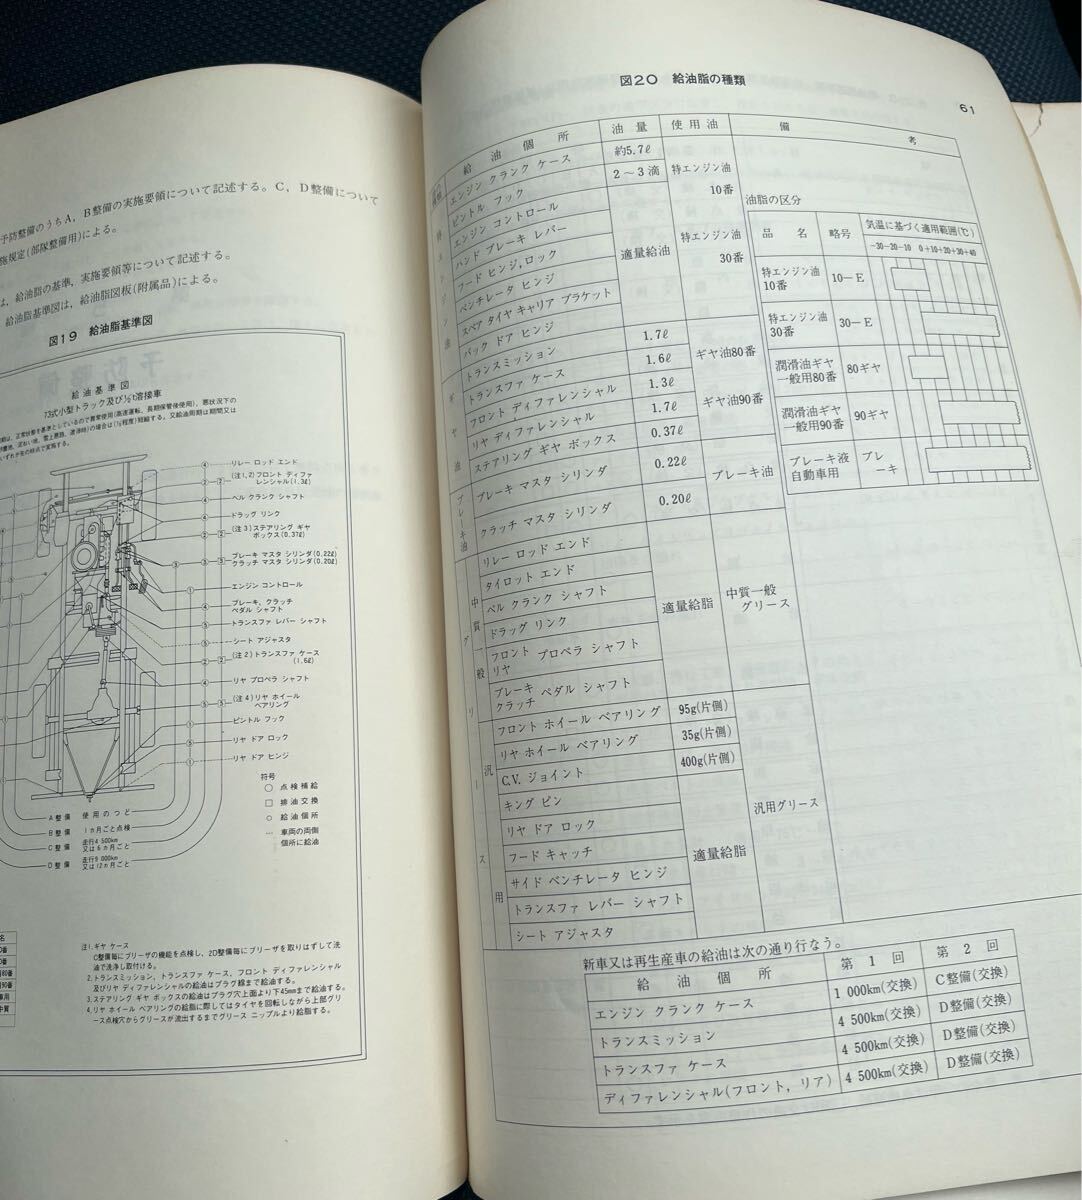 予防整備のうちA,B整備の実施要領について記述する。C,D整備について
施規定(部隊整備用)による。
は,給油脂の基準,実施要領等について記述する。
給油脂基準図は,給油脂図板(附属品)による。
図19 給油脂基準図
給油基準図
73式小型トラック及び½t溶接車
リレー ロッド エンド
(注1,2)フロント ディファ
レンシャル(1.3ℓ)
ベル クランク シャフト
ドラッグ リンク
(注3)ステアリング ギヤ
ボックス(0.37ℓ)
ブレーキ マスタ シリンダ(0.22ℓ)
クラッチ マスタ シリンダ(0.20ℓ)
エンジン コントロール
ブレーキ,クラッチ
ペダル シャフト
トランスファ レバー シャフト
シート アジャスタ
(注2)トランスファ ケース
(1.6ℓ)
リヤ プロペラ シャフト
(注4)リヤ ホイール
ベアリング
ピントル フック
リヤ ドア ロック
リヤ ドア ヒンジ
符号
点検補給
排油交換
給油個所
… 車両の両側
個所に給油
A整備 使用のつど
B整備 1ヵ月ごと点検
C整備 走行4 500km
又は6ヵ月ごと
D整備 走行9 000km
又は12ヵ月ごと
注1.ギヤ ケース
C整備毎にブリーザの機能を点検し,2D整備毎にブリーザを取りはずして洗
油で洗浄し取付ける。
2.トランスミッション,トランスファ ケース,フロント ディファレンシャル
及びリヤ ディファレンシャルの給油はプラグ線まで給油する。
3.ステアリング ギヤ ボックスの給油はプラグ穴上面より下45mmまで給油する。
4.リヤ ホイール ベアリングの給脂に際してはタイヤを回転しながら上部グリ
ース点検穴からグリースが流出するまでグリース ニップルより給脂する。
61
図20 給油脂の種類
給油個所 油量 使用油 備考
特エンジン油
エンジン クランク ケース 約5.7ℓ 特エンジン油
10番
ピントル フック 2~3滴
エンジン コントロール 適量給油 特エンジン油
30番
ハンド ブレーキ レバー
フード ヒンジ,ロック
ベンチレータ ヒンジ
スペア タイヤ キャリア ブラケット
バック ドア ヒンジ
ギヤ油
トランスミッション 1.7ℓ ギヤ油80番
トランスファ ケース 1.6ℓ
フロント ディファレンシャル 1.3ℓ ギヤ油90番
リヤ ディファレンシャル 1.7ℓ
ステアリング ギヤ ボックス 0.37ℓ
ブレーキ油
ブレーキ マスタ シリンダ 0.22ℓ ブレーキ油
クラッチ マスタ シリンダ 0.20ℓ
グリース
中質一般
リレー ロッド エンド 適量給脂 中質一般
グリース
タイロット エンド
ベル クランク シャフト
ドラッグ リンク
フロント
リヤ プロペラ シャフト
ブレーキ
クラッチ ペダル シャフト
汎用
フロント ホイール ベアリング 95g(片側) 汎用グリース
リヤ ホイール ベアリング 35g(片側)
C.V. ジョイント 400g(片側)
キング ピン 適量給脂
リヤ ドア ロック
フード キャッチ
サイド ベンチレータ ヒンジ
トランスファ レバー シャフト
シート アジャスタ
油脂の区分
品名 略号 気温に基づく適用範囲(℃)
-30-20-10 0+10+20+30+40
特エンジン油
10番 10-E
特エンジン油
30番 30-E
潤滑油ギヤ
一般用80番 80ギヤ
潤滑油ギヤ
一般用90番 90ギヤ
ブレーキ液
自動車用 ブレ
ーキ
新車又は再生産車の給油は次の通り行なう。
給油個所 第1回 第2回
エンジン クランク ケース 1 000km(交換) C整備(交換)
トランスミッション 4 500km(交換) D整備(交換)
トランスファ ケース 4 500km(交換) D整備(交換)
ディファレンシャル(フロント,リア) 4 500km(交換) D整備(交換)